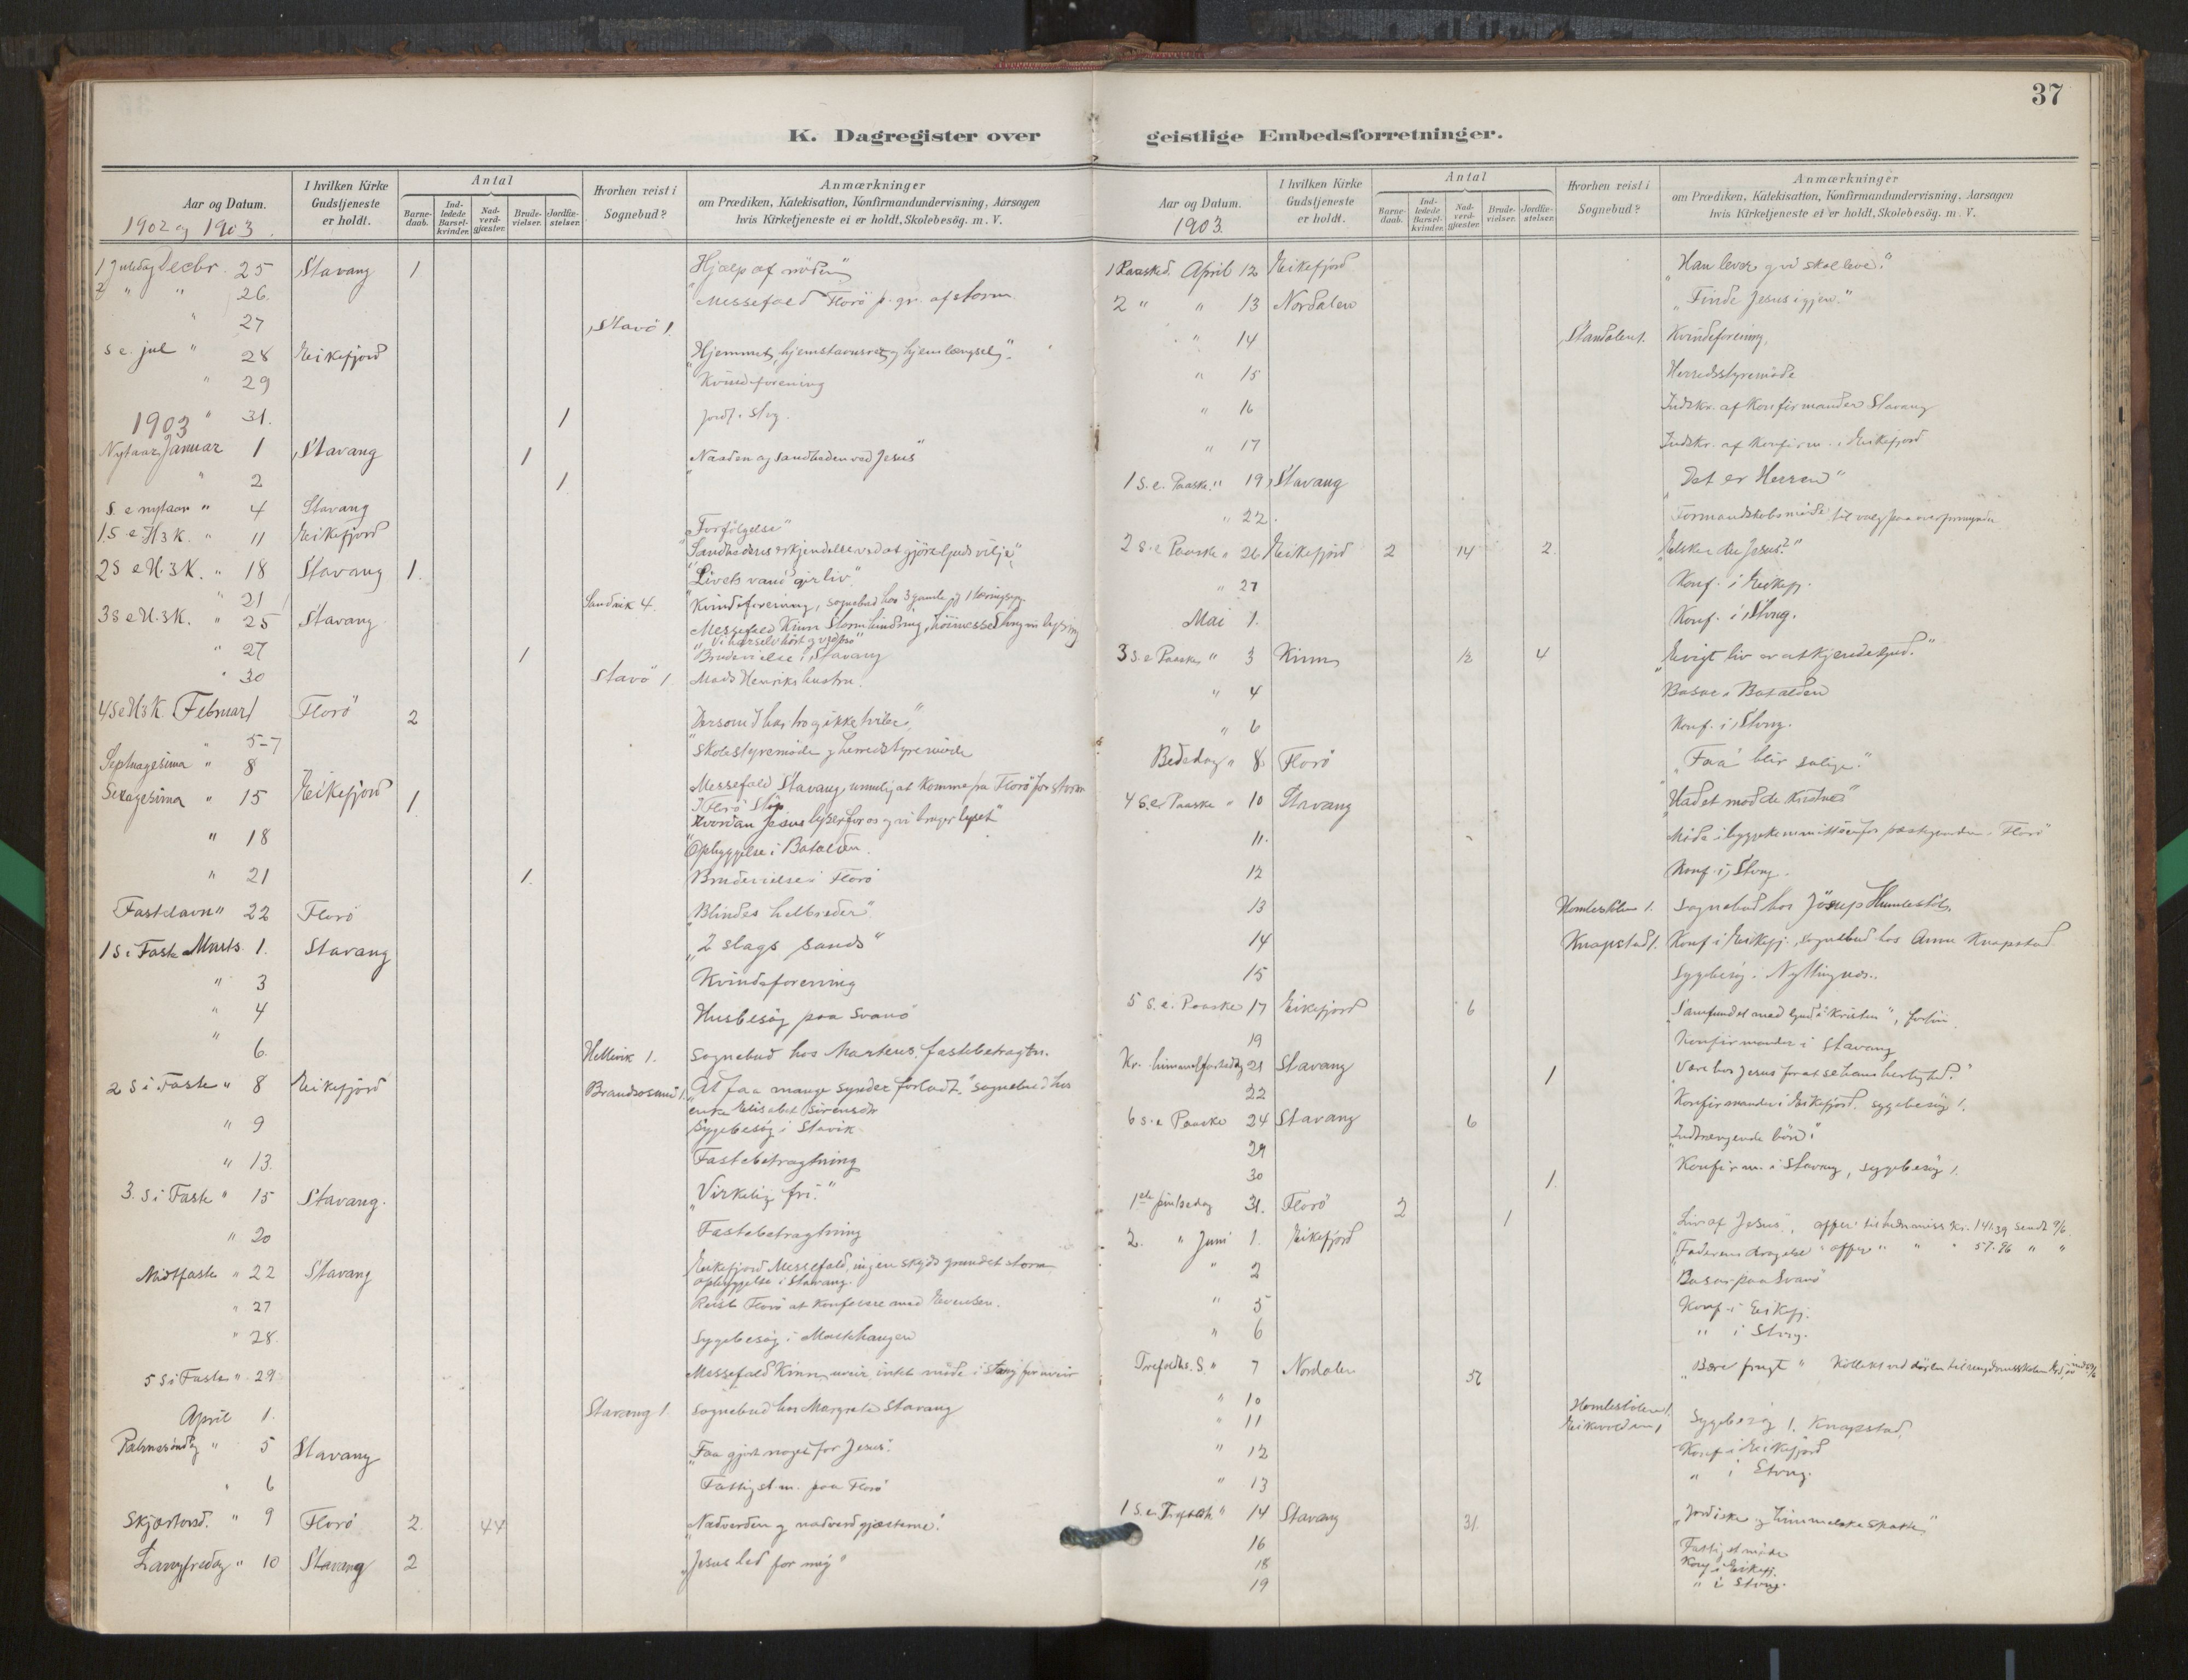 37
K. Dagregister over geistlige Embedsforretninger.
Aar og Datum.
1902 og 1903.
I hvilken Kirke Gudstjeneste er holdt.
Antal
Barnedaab.
Indledede Barselkvinder.
Nadverdgjæster.
Brudevielser.
Jordfæstelser.
Hvorhen reist i Sognebud?
Anmærkninger
om Prædiken, Katekisation, Konfirmandundervisning, Aarsagen
hvis Kirketjeneste ei er holdt, Skolebesög. m. V.
1 Juledag Decbr. 25 Stavang 1 "Hjælp af nöden"
2 " " 26. Messefald Florö p. gr. af storm.
" 27 Stavö 1.
S e. jul " 28 Eikefjord "Hjemmet, hjemstavnsret og hjemlængsel".
" 29 Kvindeforening
1903 " 31. 1 Jordf. Stvg.
Nytaar Januar 1 Stavang 1 "Naaden og Sandheden ved Jesus"
" 2 1
S. e nytaar " 4 Stavang "Forfölgelse"
1 S e. H 3 K. " 11 Eikefjord "Sandhedens erkjendelse ved at gjöre Guds vilje"
2 S e H. 3 K. " 18 Stavang 1. "Livets vand gir liv".
" 21 Sandvik 4. Kvindeforening, sognebud hos 3 gamle og 1
3 S e H. 3 K. " 25 Stavang Messefald Kinn Stormhindring, höimesse Stvng
"Vi har selv hört og ved
" 27 1 Brudevielse i Stavang
" 30 Stavö 1. Mads Henriks hustru.
4 S e H 3 K. Februar 1 Florö 2 "Dersom I har tro og ikke tviler".
" 5-7 Skolestyremöde og herredstyremöde
Septuagesima " 8 Messefald Stavang, umulig at komme fra Florö for storm
Sexagesima " 15 Eikefjord 1 Hvordan Jesus lyser for os og vi bruger lyset"
" 18 Opbyggelse i Batalden.
" 21 1. Brudevielse i Florö
Fastelavn " 22 Florö "Blindes helbreder".
1 S i Faste Marts 1. Stavang "2 slags sands"
" 3 Kvindeforening
" 4 Husbesög paa Svanö
" 6. Hellevik 1. Sognebud hos Martens, fastebetragtn.
2 S i Faste " 8 Eikefjord Brandsosund 1. "At faa mange synder forladt." Sognebud hos
enke Elisabet Sörensdtr
" 9 Sygebesög i Stavik
" 13. Fastebetragtning
3. S i Faste " 15 Stavang. "Virkelig fri."
" 20 Fastebetragtning
Midtfaste " 22 Stavang Eikefjord Messefald, ingen skyds grundet storm
opbyggelse i Stavang.
" 27 Reist Florö at konferere med Evensen.
" 28. Sygebesög i Mastehaugen
5 S i Faste " 29 Messefald Kinn, uveir, intet möde i Stavg for uveir
April 1. Stavang 1. Sognebud hos Margrete Stavang
Palmesöndag " 5 Stavang "Faa gjort noget for Jesus".
" 6 Fattigst m. paa Florö
Skjærtorsd. " 9 Florö 2. 44 "Nadverden og nadverdgjæsterne".
Langfredag " 10 Stavang 2 "Jesus led for mig"
Aar og Datum.
1903.
I hvilken Kirke Gudstjeneste er holdt.
Antal
Barnedaab.
Indledede Barselkvinder.
Nadverdgjæster.
Brudevielser.
Jordfæstelser.
Hvorhen reist i Sognebud?
Anmærkninger
om Prædiken, Katekisation, Konfirmandundervisning, Aarsagen
hvis Kirketjeneste ei er holdt, Skolebesög. m. V.
1 Paasked. April 12 Eikefjord "Han lever og vi skal leve."
2 " " 13 Nordalen "Finde Jesus igjen."
" 14 Standalen 1. Kvindeforening,
" 15 Herredsstyremöde
" 16 Indskr. af Konfirmander Stavang
" 17 Indskr. af Konfirm. i Eikefjord
1 S. e. Paaske " 19 Stavang "Det er Herren"
" 22. Formandskabsmöde til valg paa overformynder
2 S. e Paaske " 26 Eikefjord 2 14 2. "Elsker du Jesus?"
" 27 Konf. i Eikefj.
Mai 1. Konf. i Stvng.
3 S. e Paaske " 3 Kinn 12 4 "Evigt liv er at kjende Gud."
" 4 Basar i Batalden
" 6 Konf. i Stvng.
Bededag " 8 Florö "Faa blir salige."
4 S. e Paaske " 10 Stavang "Hadet mod de kristne"
11. Möde i byggekommitteen for præstegaarden i Florö
12 Konf. i Stvng.
13 Homlestölen 1. Sognebud hos Jösep Humlestöl.
14 Knapstad 1. Konf i Eikefj., sognebud hos Anna Knapstad
15 Sygebesög i Nyttingnes.
5 S. e. Paaske 17 Eikefjord 6 "Samfundet med Gud i Kristen",
19 Konfirmander i Stavang
Kr. himmelfartsdag 21 Stavang 1 "Være hos Jesus for at se hans herlighed."
22 Konfirmander i Eikefjord. sygebesög 1.
6 S. e Paaske 24 Stavang 6 "Indtrængende bön".
29 Konfirm. i Stavang, sygebesög 1.
30 1.
1ste pintsedag 31. Florö 2 1 "Liv af Jesus", offer til hedn.miss kr. 141.39 sendt 9/6
2. " Juni 1. Eikefjord "Faderens dragelse" offer " " " 57.96 " "
" 2 Basar paa Svanö
" 5 Konf. i Eikefj.
" 6 " i Stvng.
Trefoldhs. S. " 7 Nordalen 56 "Bære frugt" Kollekt ved dören til ungdomsskolen
" 10 Homlestölen 1.
" 11 Eikevolden 1 Sygebesög 1. Knapstad.
" 12 Konf i Eikefjord
" 13 " i Stvng.
1 S. e. Trefoldh " 14 Stavang 31. "Jordiske og himmelske skatte"
16 Fattigstmöde
18 Konf i Eikefj.
19 " i Stvng.